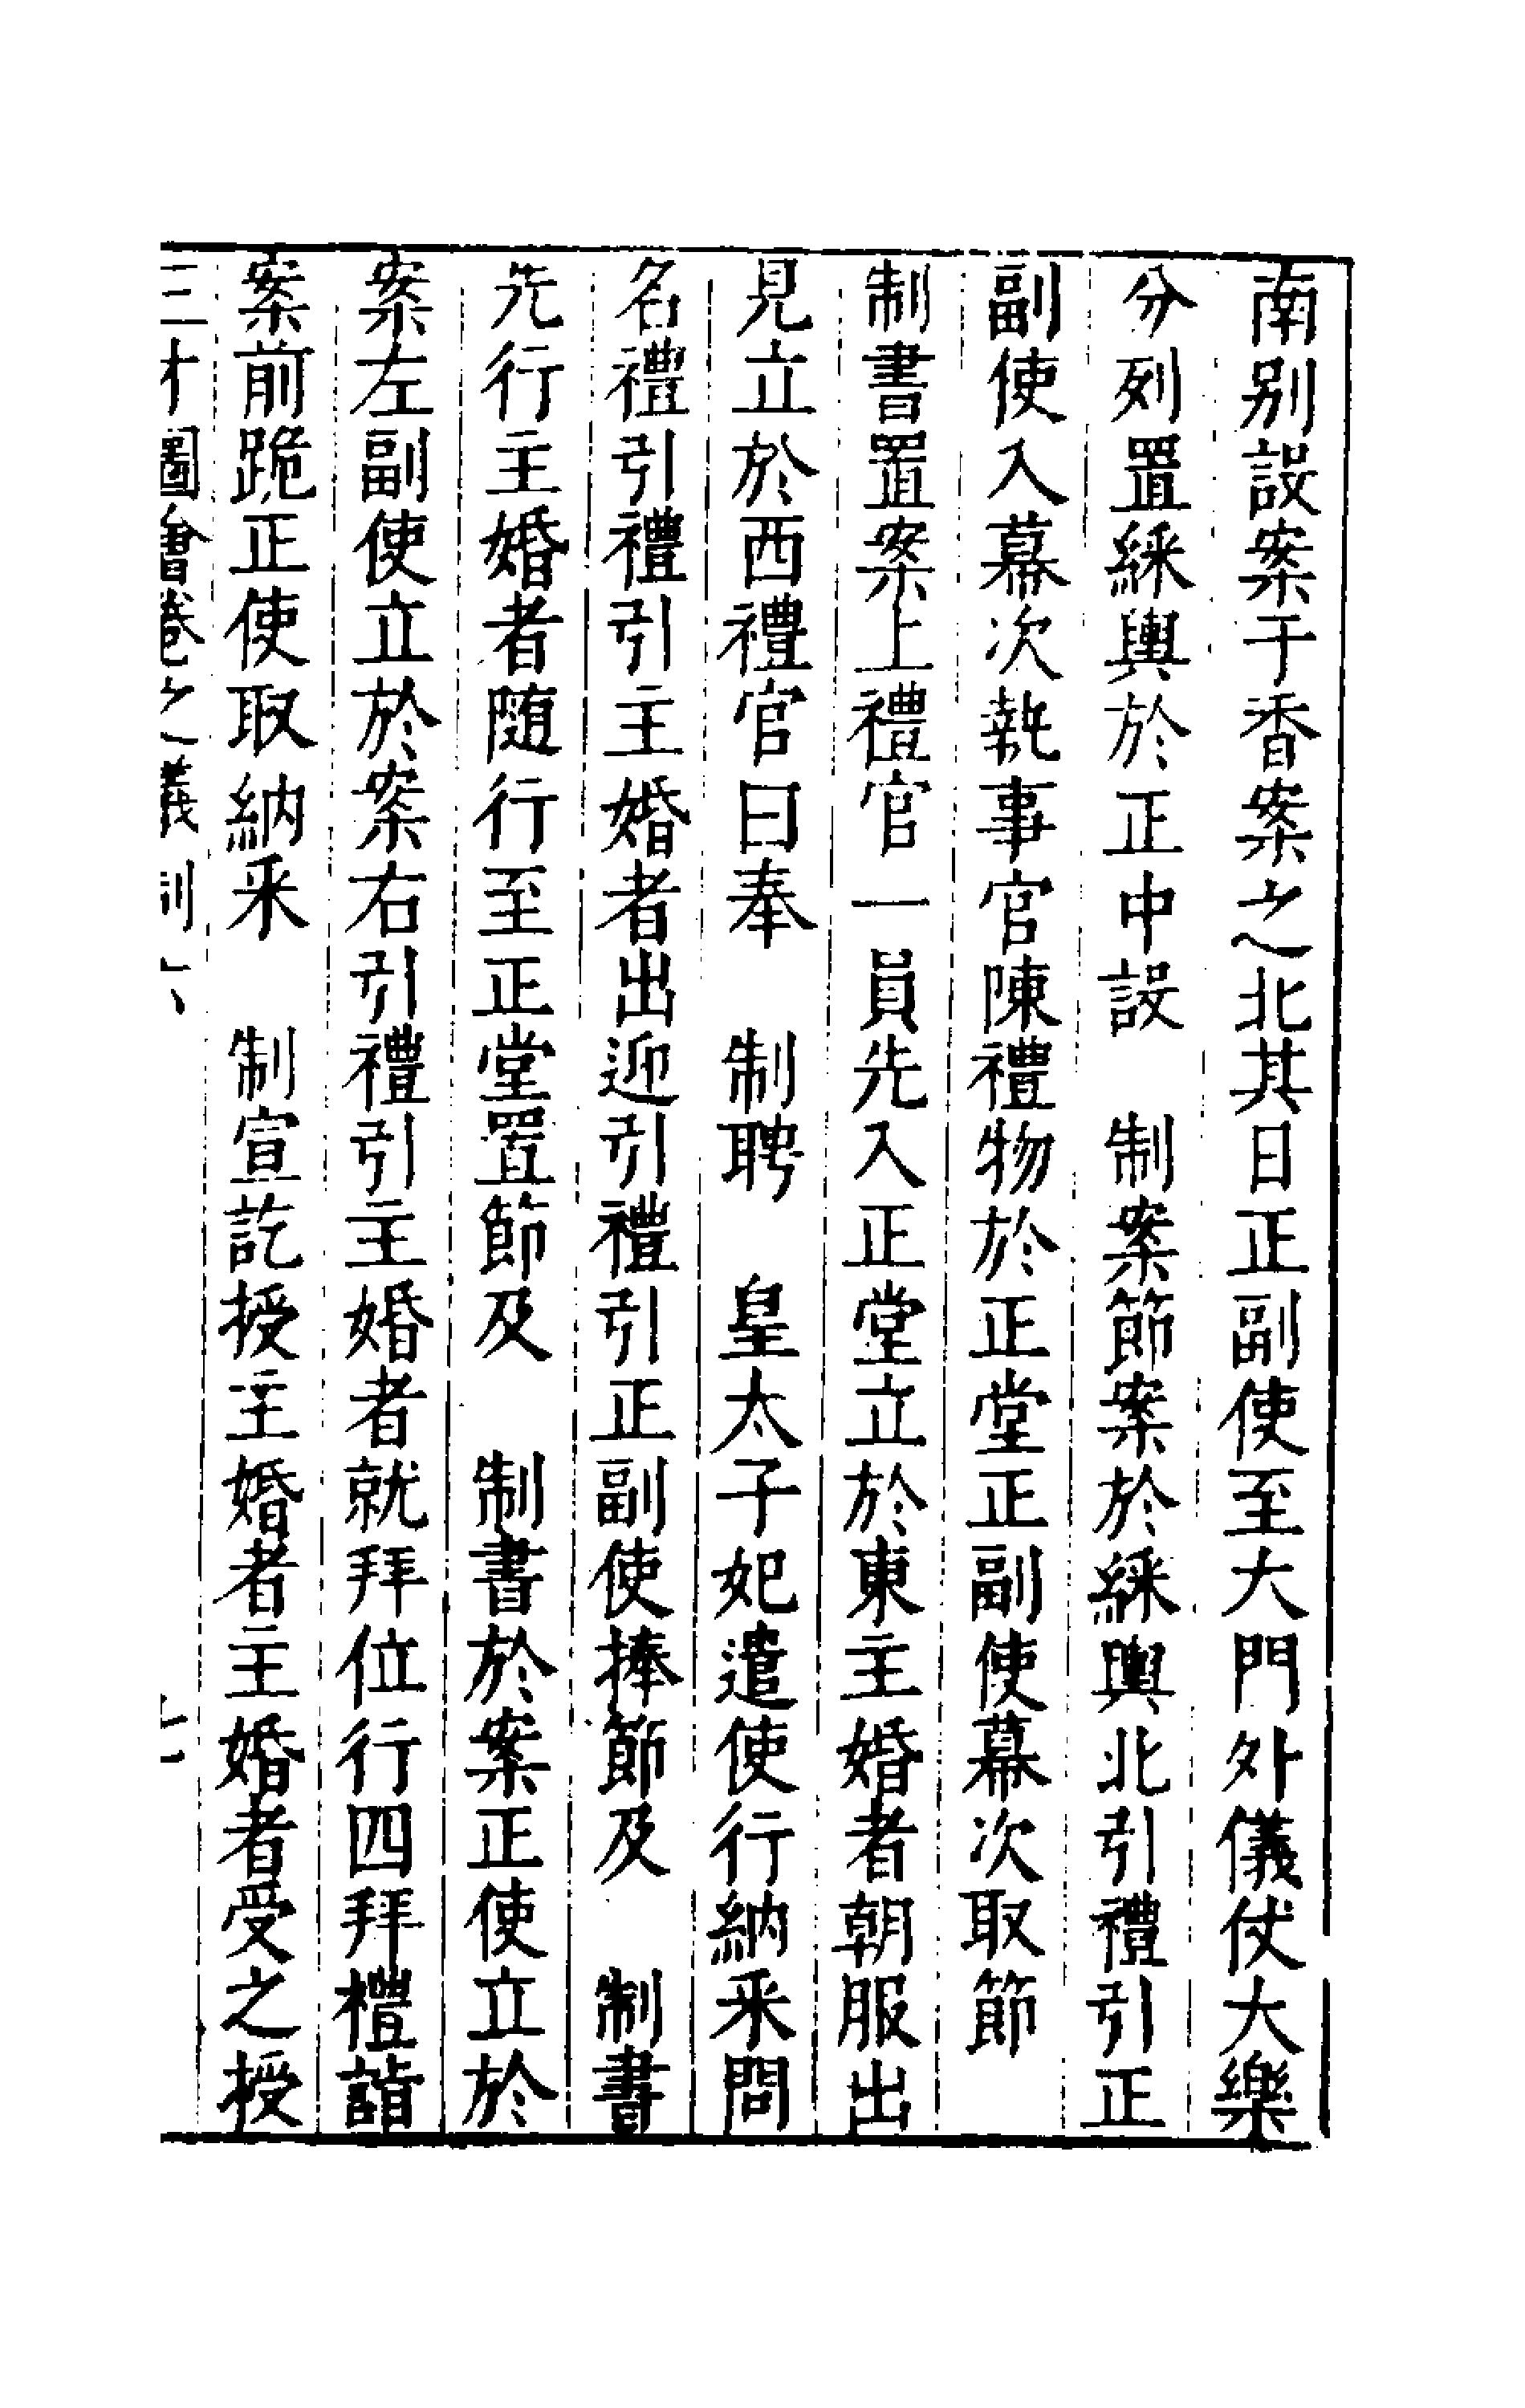 南别設案于香案之北其日正副使至大門外儀仗大樂
分列置綵輿於正中設　制案節案於綵輿北引禮引正
副使入幕次執事官陳禮物於正堂正副使幕次取節
制書置案上禮官一員先入正堂立於東主婚者朝服出
見立於西禮官曰奉　制聘　皇太子妃遣使行納釆問
名禮引禮引主婚者出迎引禮引正副使捧節及　制書
先行主婚者随行至正堂置節及　制書於案正使立於
案左副使立於案右引禮引主婚者就拜位行四拜禮詣
案前跪正使取納釆　制宣訖授主婚者主婚者受之授
三才圖會卷之儀制六